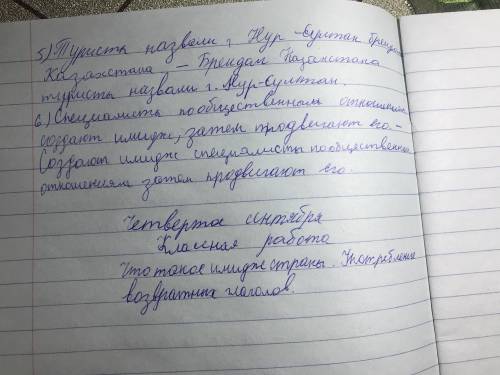 5) Туристы назвали г. Нур-Султан брендом
Казахстана – Брендам Казахстана
туристы назвали г. Нур-Султан.
6.) Специалисты пообщественным отношениям
создают имидж, затем продвигают его –
Создают имидж специалисты пообщественным
отношениям затем продвигают его.
Четвертое сентября
Классная работа
Что такое имидж страны. Употребление
возвратных глаголов.